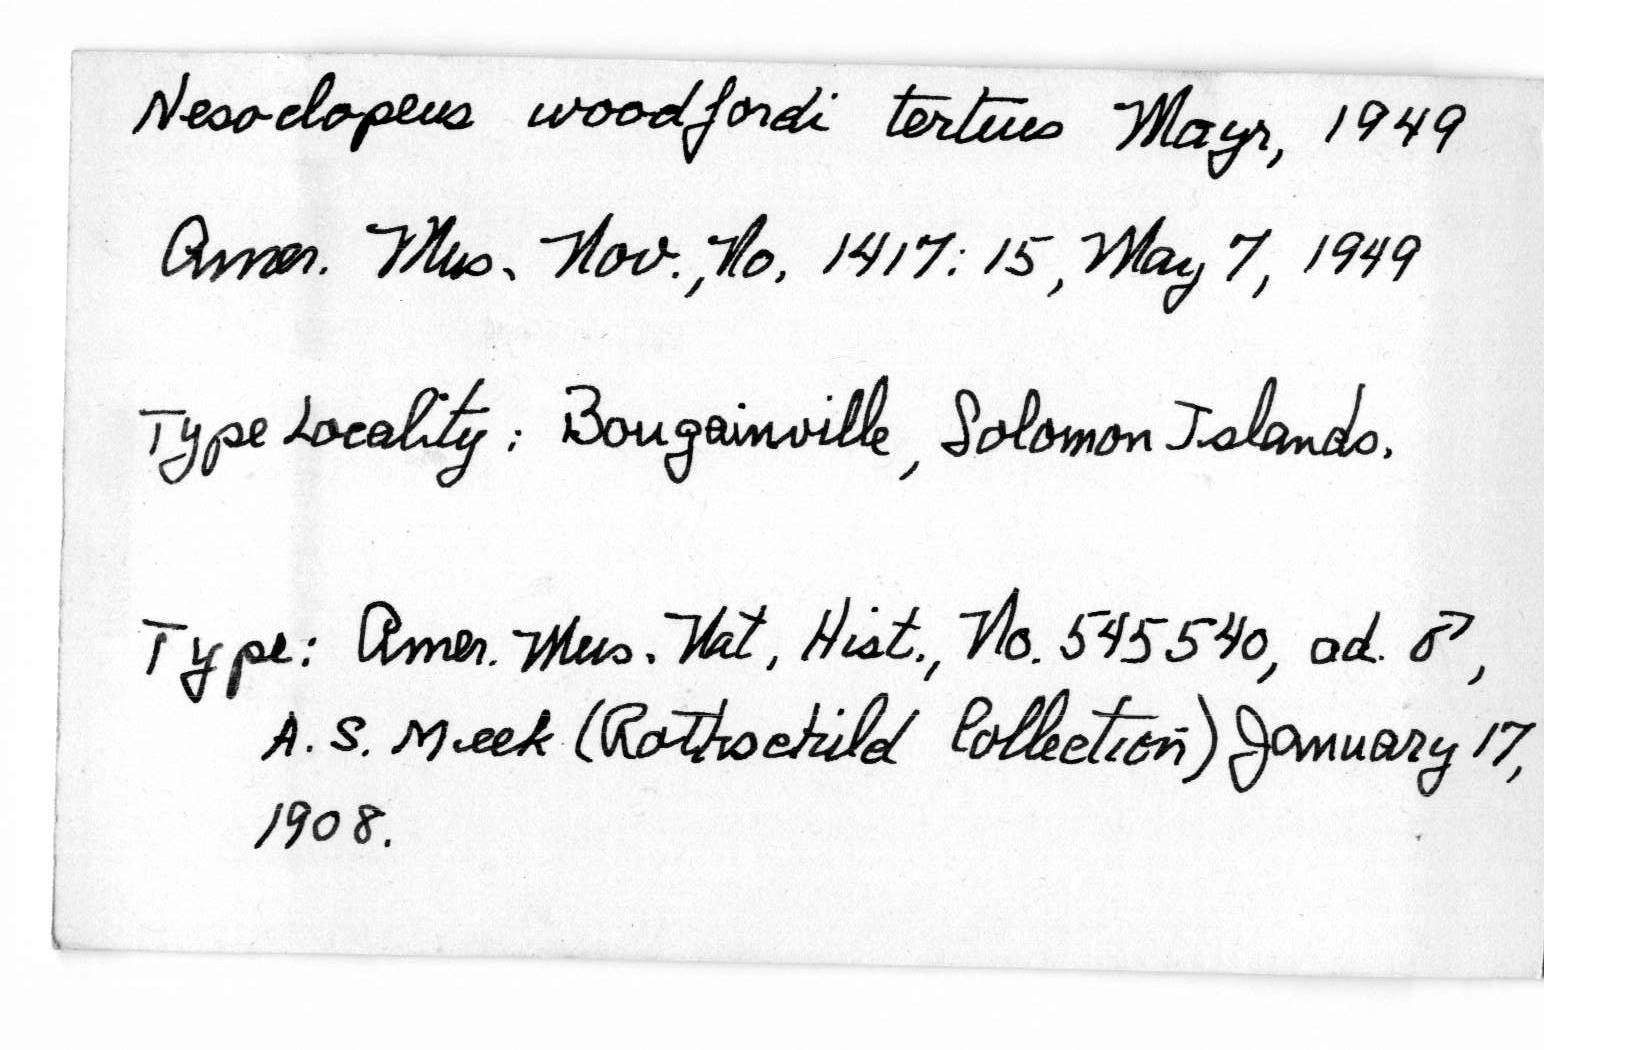 Nesoclopeus woodfordi tertius Mayr, 1949
Amer. Mus. Nov., No. 1417: 15, May 7, 1949
Type Locality: Bougainville, Solomon Islands.
Type: Amer. Mus. Nat. Hist., No. 545540, ad. ♂,
A. S. Meek (Rothschild Collection) January 17,
1908.